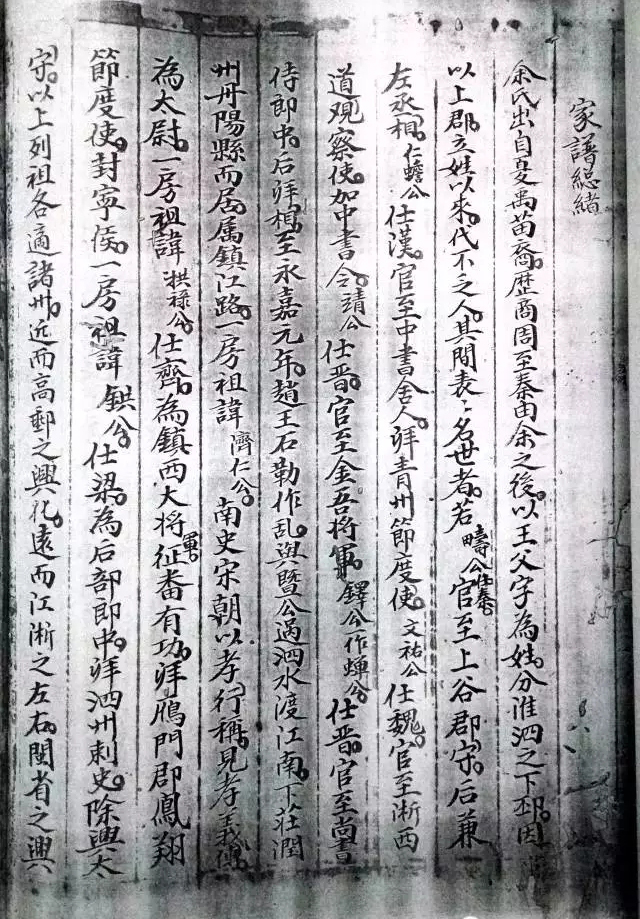 家譜総緒
余氏出自夏禹苗裔歷商周至秦由余之後以王父字為姓分淮泗之下邳因
以上郡立姓以來代不乏人其間表〻名世者若疇公仕秦官至上谷郡守后兼
左丞相仁蟾公仕漢官至中書舍人拜青州節度使文祐公仕魏官至淅西
道观察使加中書令靖公仕晋官至金吾將軍鐸公一作蟬公仕晋官至尚書
侍郎中后拜相至永嘉元年趙王石勒作乱與暨公過泗水渡江南下莊潤
州丹陽縣而居属鎮江路一房祖諱濟仁公南史宋朝以孝行稱見孝義傳
為太尉一房祖諱拱禄公仕齊為鎮西大将軍征番有功拜鴈門郡鳳翔
節度使封寧侯一房祖諱鉷公仕梁為后部郎中拜泗州刺史除興太
守以上列祖各適諸州近而高郵之興化遠而江淅之左右閩省之興